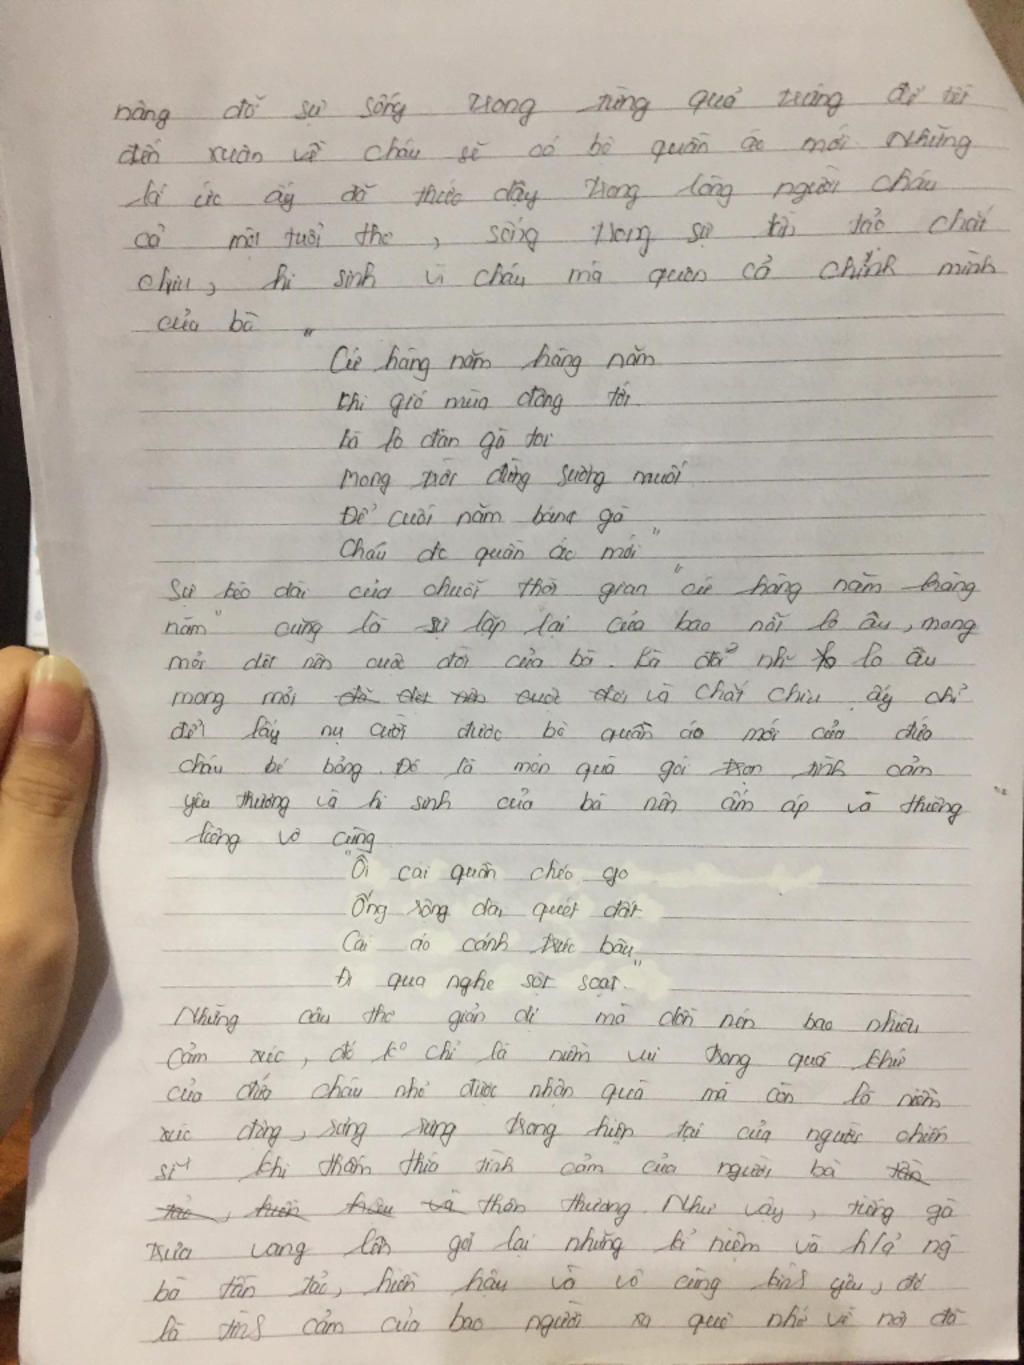 nâng đỡ sự sống trong từng quả trứng để tết
đến xuân về cháu sẽ có bộ quần áo mới. Những
kí ức ấy đã thức dậy trong lòng người cháu
cả một tuổi thơ, sống trong sự tần tảo chắt
chiu, hi sinh vì cháu mà quên cả chính mình
của bà "
Cứ hàng năm hàng năm
Khi gió mùa đông tới
Bà lo đàn gà toi
Mong trời đừng sương muối
Để cuối năm bán gà
Cháu đc quần áo mới "
Sự kéo dài của chuỗi thời gian "cứ hàng năm hàng
năm" cũng là sự lặp lại của bao nỗi lo âu, mong
mỏi dệt nên cuộc đời của bà. Bà để lo âu
mong mỏi và chắt chiu ấy chỉ
đổi lấy nụ cười được bộ quần áo mới của đứa
cháu bé bỏng. Đó là món quà gói trọn tình cảm
yêu thương và hi sinh của bà nên ấm áp và thiêng
liêng vô cùng
"Ôi cái quần chéo go
Ống rộng dài quét đất
Cái áo cánh trúc bâu
Đi qua nghe sột soạt"
Những câu thơ giản dị mà dồn nén bao nhiêu
cảm xúc, đó ko chỉ là niềm vui trong quá khứ
của đứa cháu nhỏ được nhận quà mà còn là niềm
xúc động, rưng rưng trong hiện tại của người chiến
sĩ khi thấm thía tình cảm của người bà tần
tảo, hiền hậu và thân thương. Như vậy, tiếng gà
trưa vang lên gợi lại những kỉ niệm và h/ả ng
bà tần tảo, hiền hậu và vô cùng kính yêu, đó
là tình cảm của bao người xa quê nhớ về nơi đã